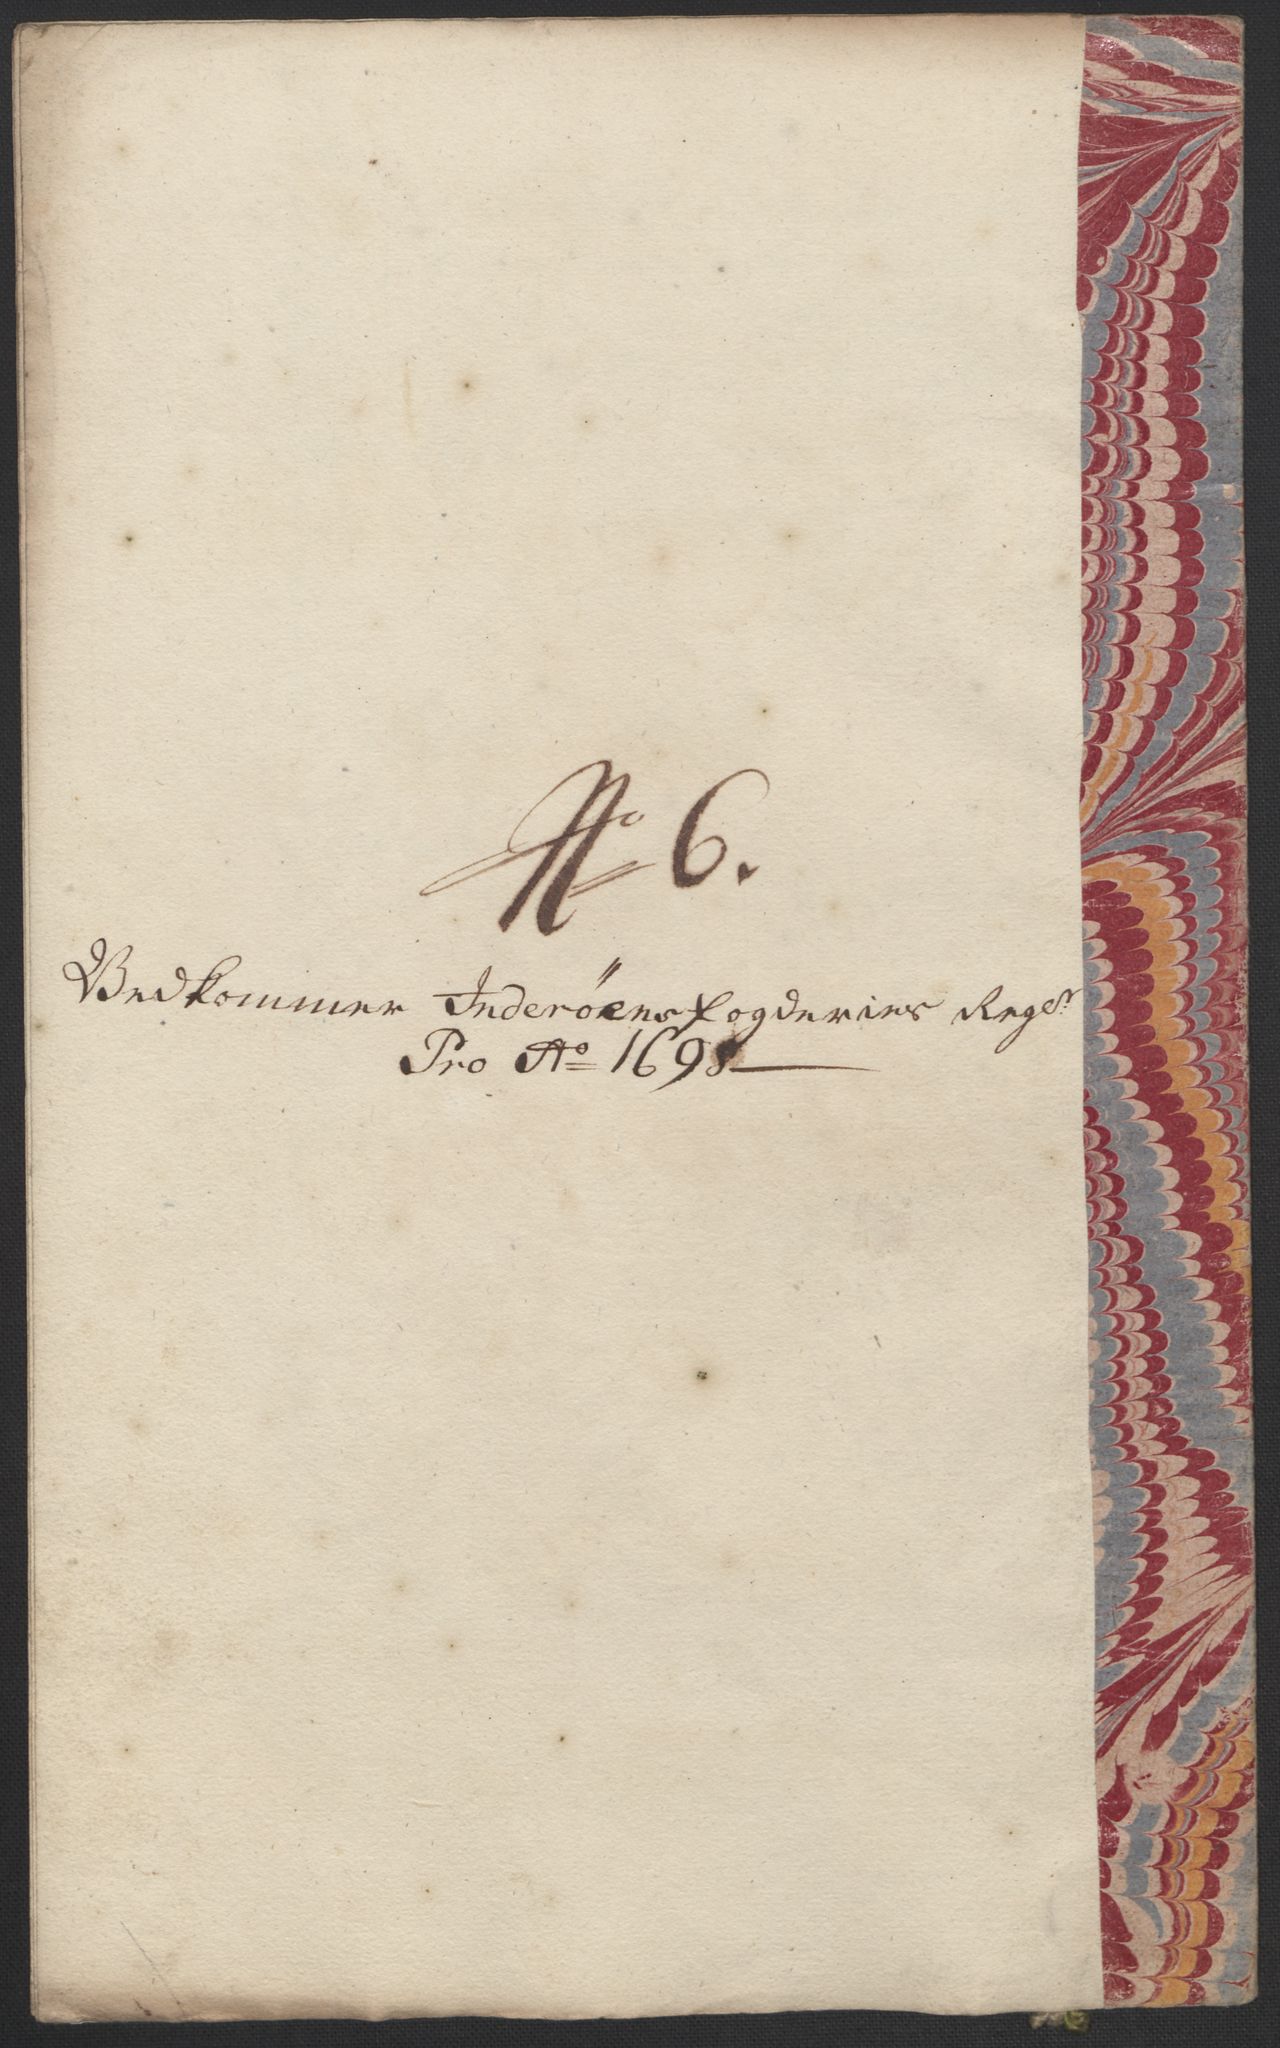 No 6.
Vedkommer Inderöens fogderies Regs:
Pro Ao 1698